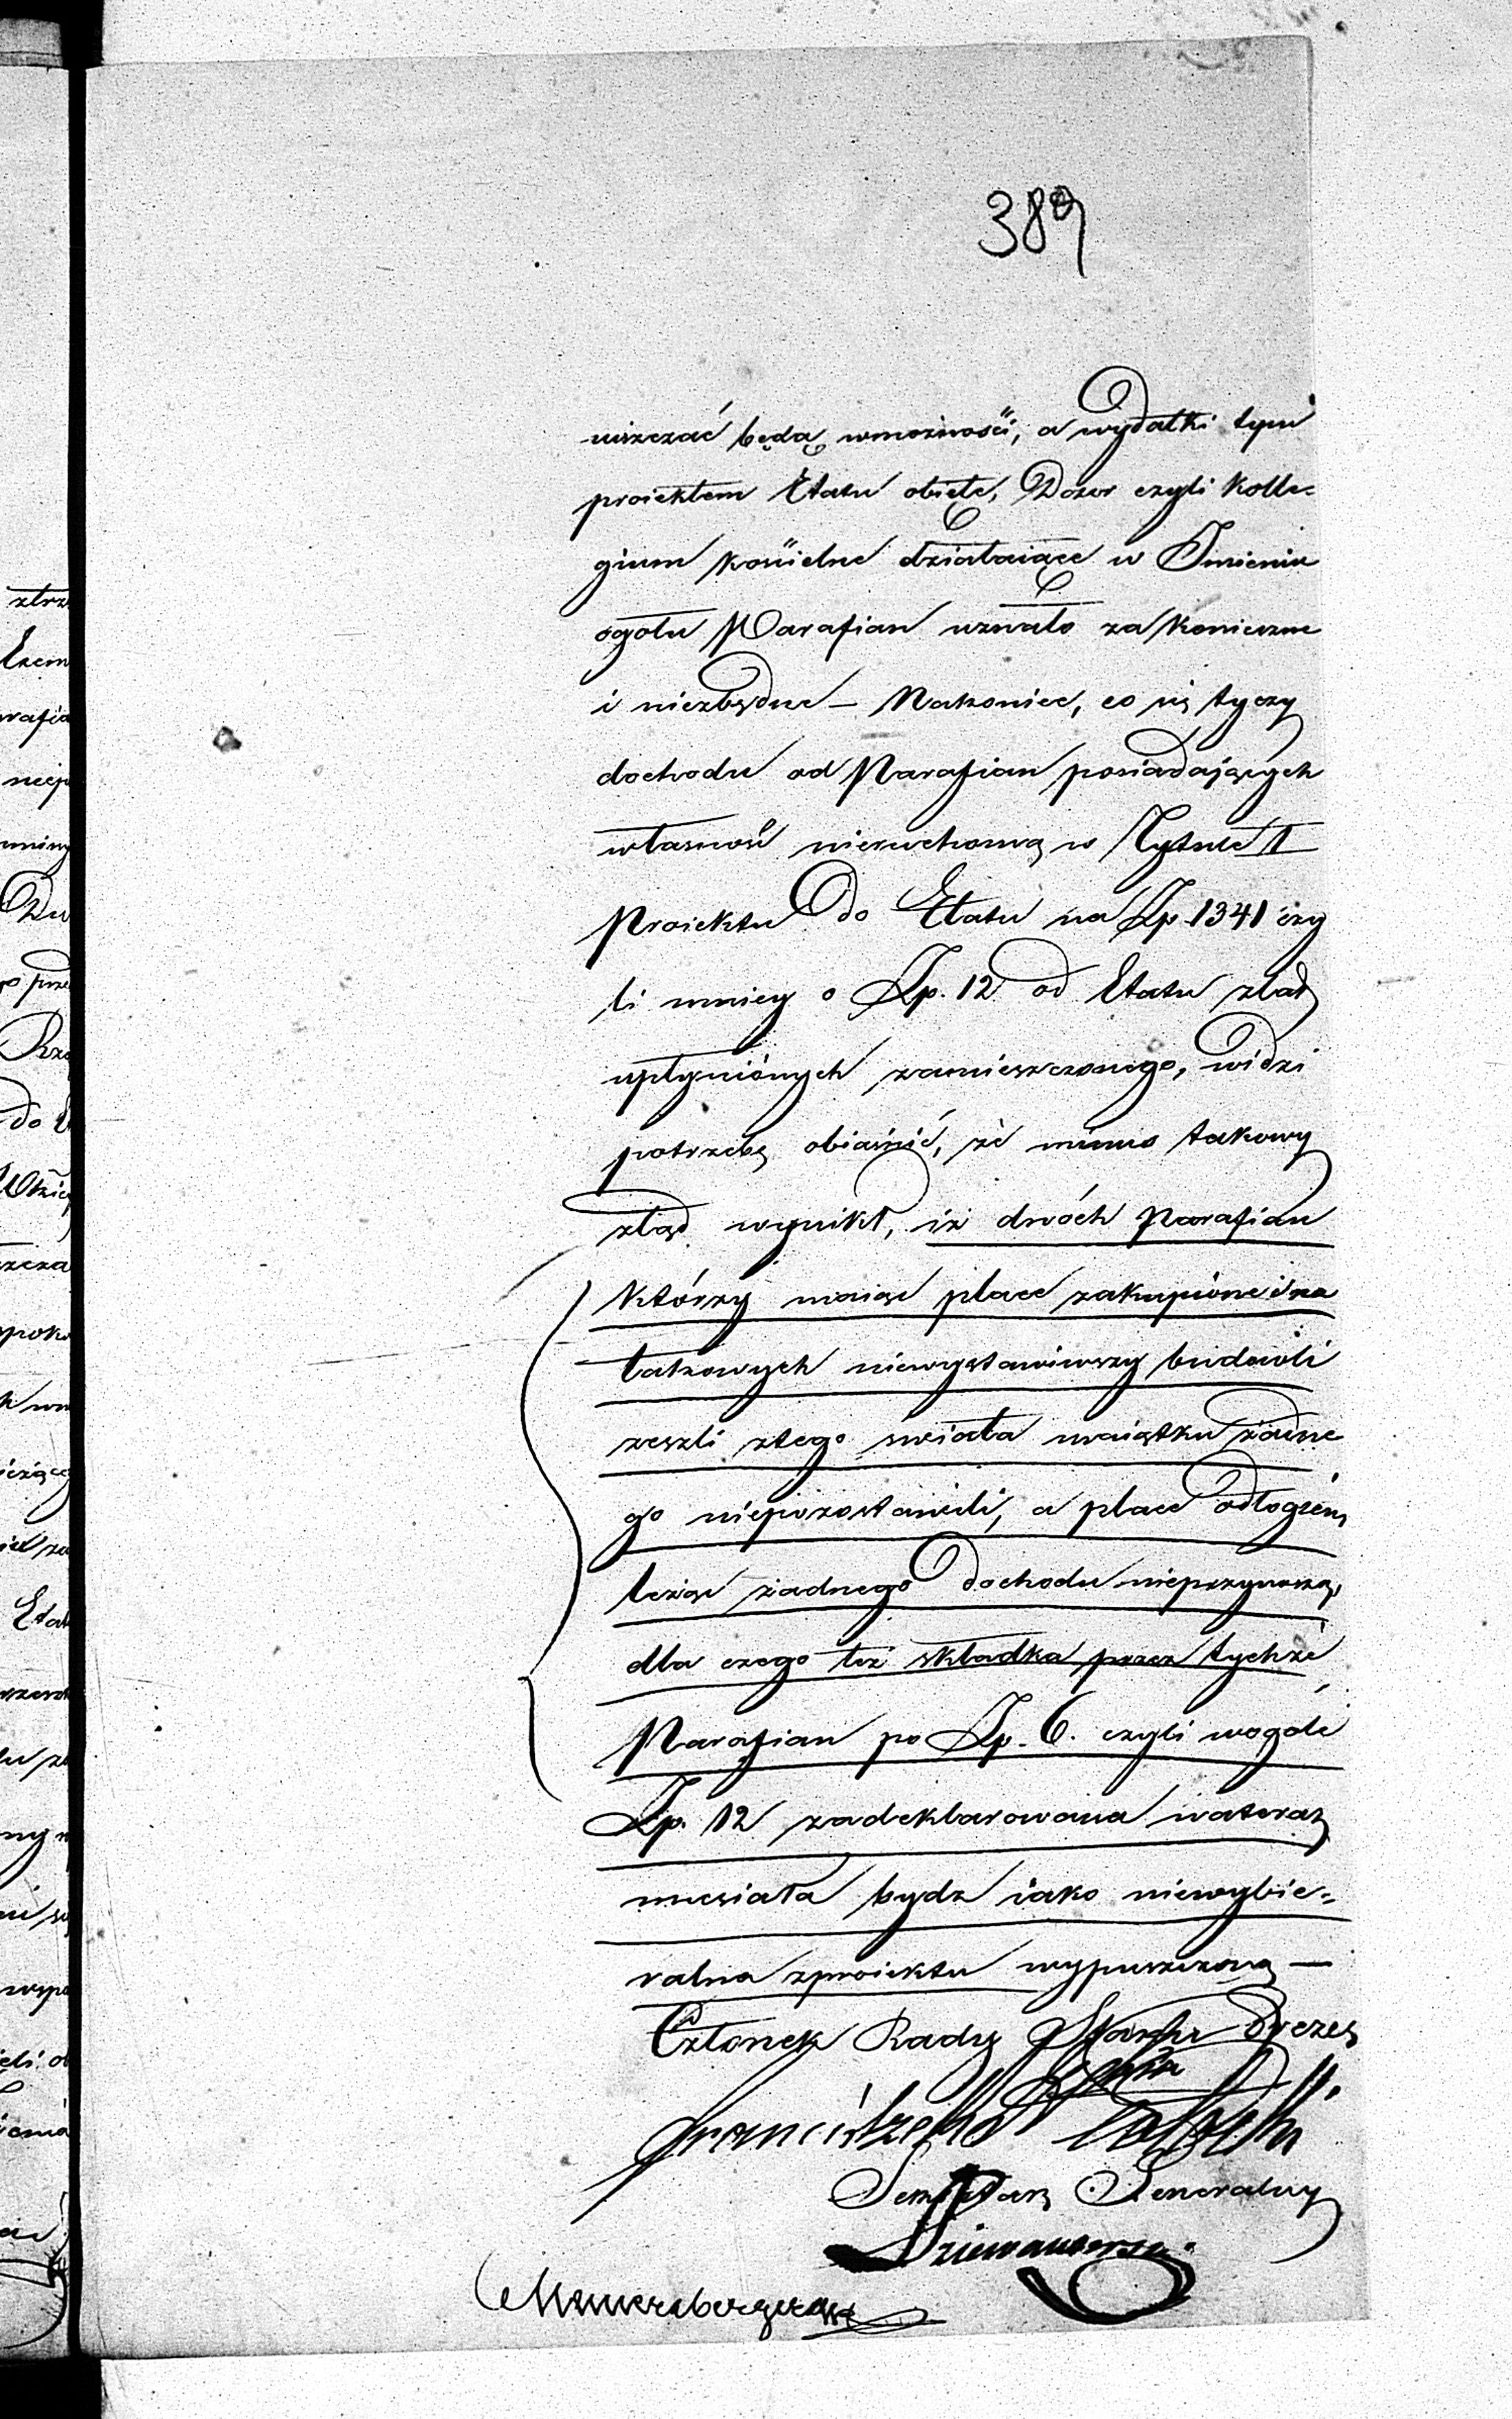 389
uiszczać będą wmożności, a wydatki tym
proiektem Etatu obięte, Dozor czyli Kolle-
gium kościelne działaiące w Imieniu
ogołu Parafian uznało za konieczne
i niezbędne — Nakoniec, co się tyczy
dochodu od Parafian posiadających
własność nieruchomą w Tytule 1
Proiektu do Etatu na Zp. 1341 czy
li mniey o Zp. 12 od Etatu zlat
upłynionych zamieszczonego, widzi
potrzebę obiaśnić, że minus takowy
ztąd wynikł, iż dwóch Parafian
którzy maiąc place zakupione i na
takowych niewystawiwszy budowli
zeszli ztego świata maiątku żadne
go niepozostawili, a place odłogiem
leżąc żadnego dochodu nieprzynoszą,
dla czego też składka przez tychże
Parafian po Zp. 6. czyli wogóle
Zp. 12 zadeklarowana nateraz
musiała bydz iako niewybie=
ralna zproiektu wypuszczoną —
Członek Rady Stanu Prezes
Sekretarz Generalny
ztrz
Exem
rafia
Du
po prze
Rzą
do E
szcza
spoko
Etat